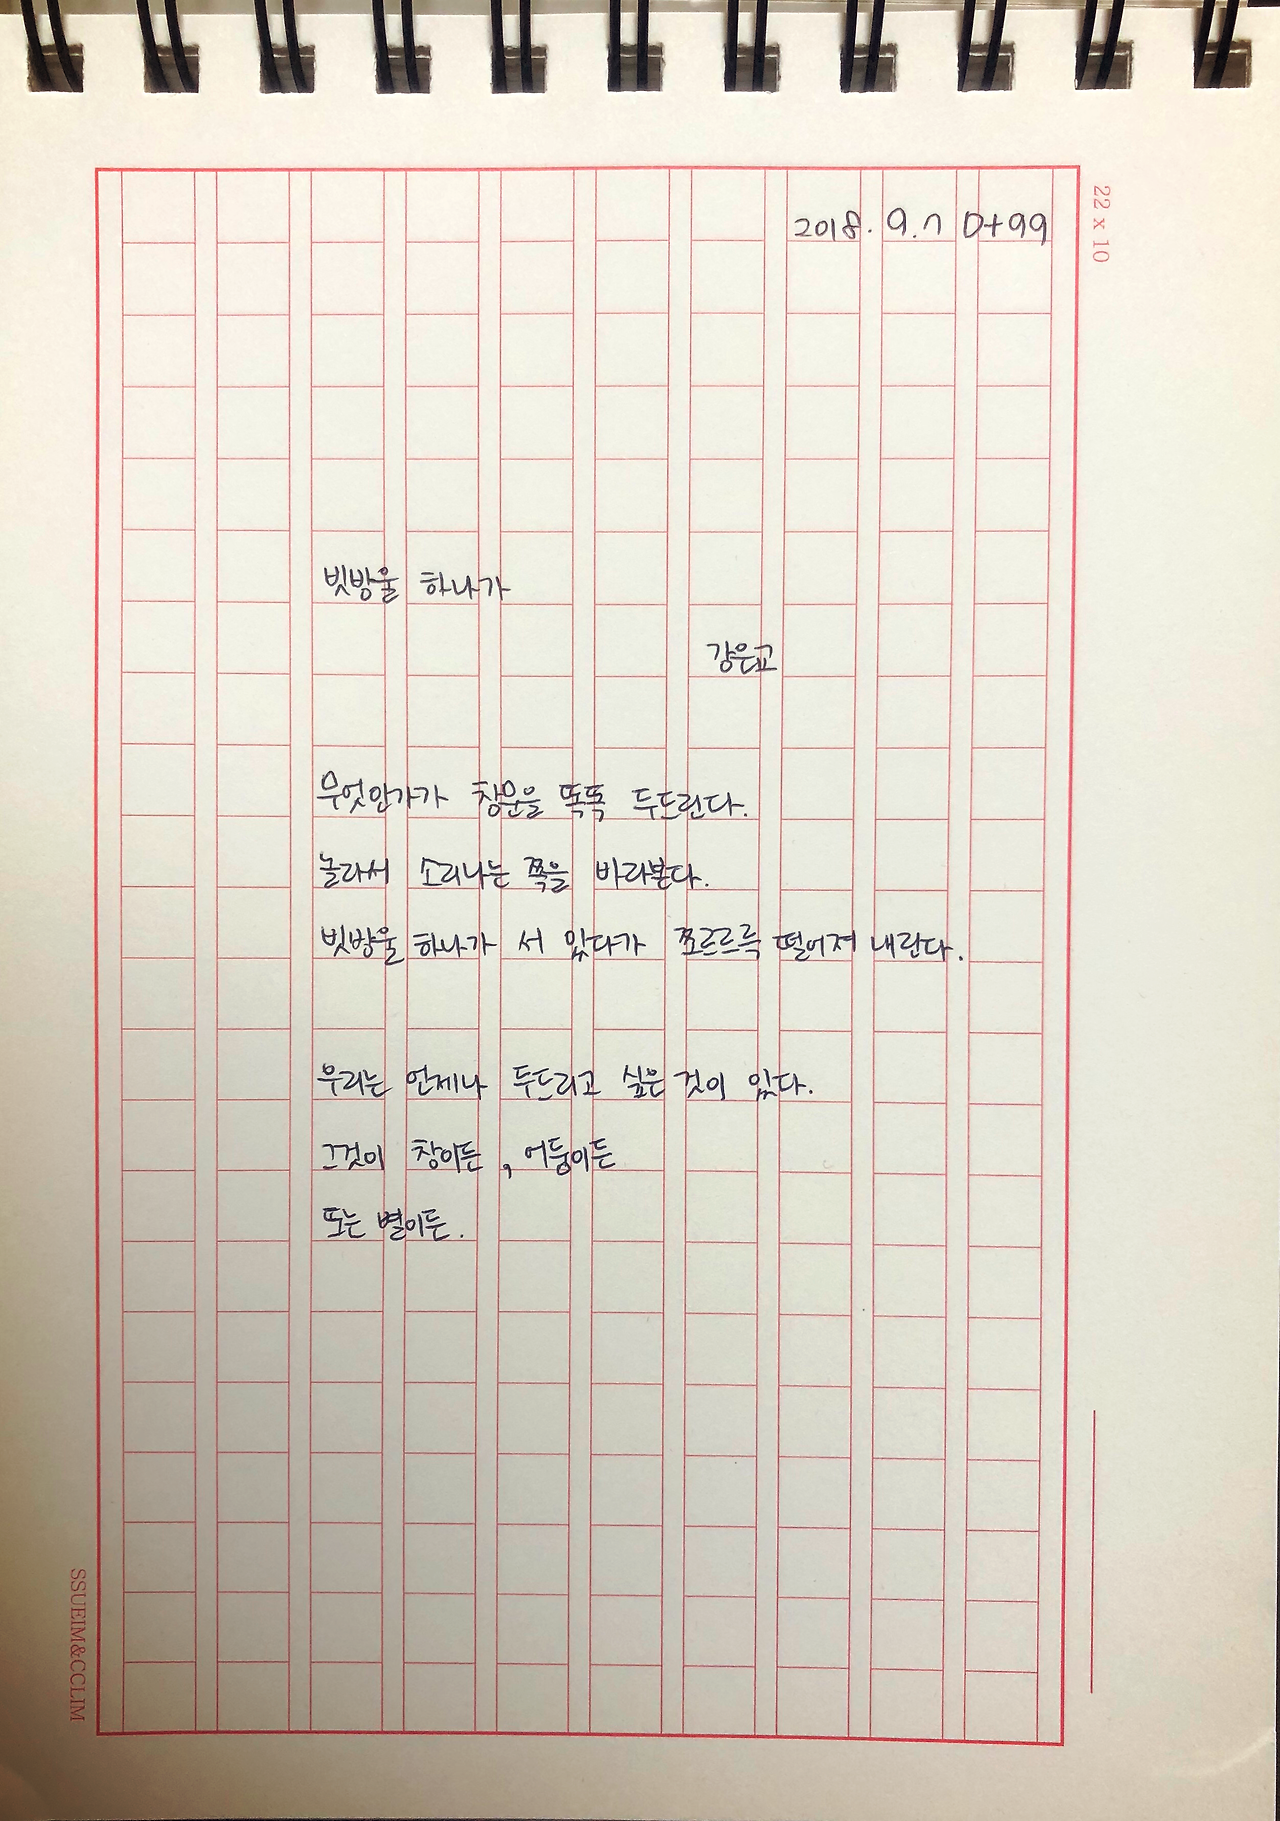 22 x 10
2018. 9. 7 D+99
빗방울 하나가
강은교
무엇인가가 창문을 똑똑 두드린다.
놀라서 소리나는 쪽을 바라본다.
빗방울 하나가 서 있다가 쪼르르륵 떨어져 내린다.
우리는 언제나 두드리고 싶은 것이 있다.
그것이 창이든, 어둠이든
또는 별이든.
SSUEIM&CCLIM